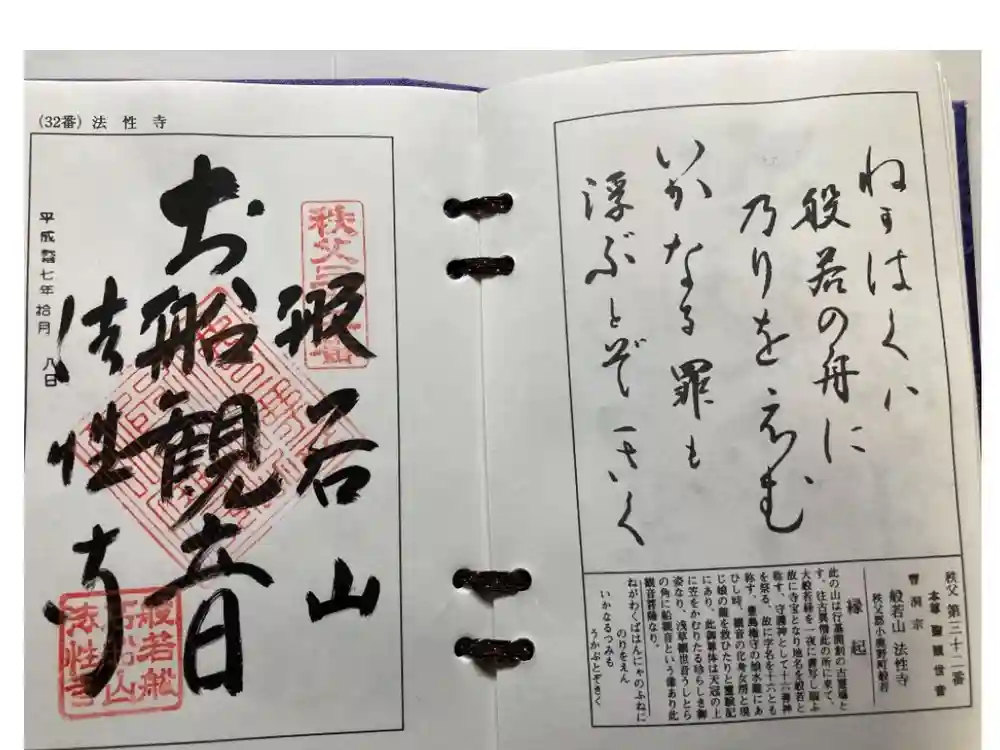 (32番) 法性寺
平成廿七年 拾月 八日
秩父三十二番
般若山
お船観音
法性寺
般若船
石船山
法性寺
ねがはくハ
般若の舟に
乃りをえむ
いかなる罪も
浮ぶとぞきく
秩父 第三十二番
本尊 聖観世音
曹洞宗
般若山 法性寺
秩父郡小鹿野町般若
縁起
此の山は行基開創の古霊場と
す。往古異僧此の所に来て、
大般若経を一夜に書写し賜ふ
故に寺宝となり地名を般若と
称す。守護神として十六善神
を祭る、故に字名を十六とも
称す。豊島権守の娘水難にあ
ひし時、観音の化身女房と現
じ娘の難を救ひたりと霊験記
にあり、此御尊体は天冠の上
に笠をかむりたる珍らしき御
姿なり、浅草観世音うしとら
の角に船観音という像あり此
観音菩薩なり。
ねがわくばはんにゃのふねに
のりをえん
いかなるつみも
うかぶとぞきく